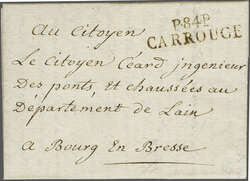 P.84.P.
CARROUGE
Au Citoyen
Le Citoyen Céard ingenieur
Des ponts, et chaussées au
Département de Lain
A Bourg En Bresse